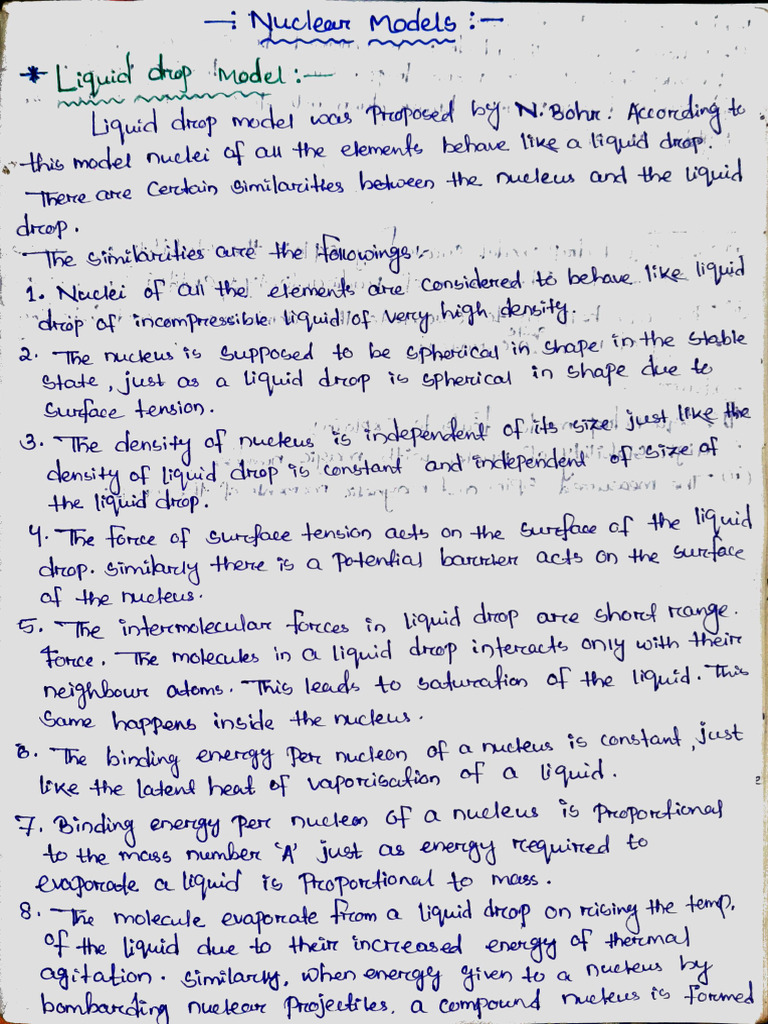 -: Nuclear Models :-
* Liquid drop Model :-
Liquid drop model was Proposed by N. Bohr. According to
this model nuclei of all the elements behave like a liquid drop.
There are Certain Similarities between the nucleus and the liquid
drop.
The similarities are the followings :-
1. Nuclei of all the elements are considered to behave like liquid
drop of incompressible liquid of very high density.
2. The nucleus is supposed to be spherical in shape in the stable
state, just as a liquid drop is spherical in shape due to
surface tension.
3. The density of nucleus is independent of its size just like the
density of liquid drop is constant and independent of size of
the liquid drop.
4. The force of surface tension acts on the surface of the liquid
drop. similarly there is a potential barrier acts on the surface
of the nucleus.
5. The intermolecular forces in liquid drop are short range.
Force. The molecules in a liquid drop interacts only with their
neighbour atoms. This leads to saturation of the liquid. This
same happens inside the nucleus.
6. The binding energy per nucleon of a nucleus is constant, just
like the latent heat of vaporisation of a liquid.
7. Binding energy per nucleon of a nucleus is proportional
to the mass number 'A' just as energy required to
evaporate a liquid is proportional to mass.
8. The molecule evaporate from a liquid drop on rising the temp.
of the liquid due to their increased energy of thermal
agitation. Similarly, when energy given to a nucleus by
bombarding nuclear projectiles, a compound nucleus is formed